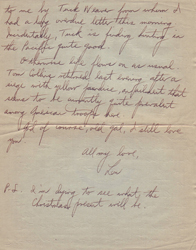 to me by Tuck Weaver from whom I
had a long overdue letter this morning
Incidentally, Tuck is finding hunting in
the Pacific quite good.
Otherwise life goes on as usual.
Tom Collins returned last evening after a
siege with yellow jaundice, an ailment that
seems to be mighty quite prevalent
among American troops here
and of course, old gal, I still love
you.
All my love,
Lou
P.S. I'm dying to see what the
Christmas present will be.